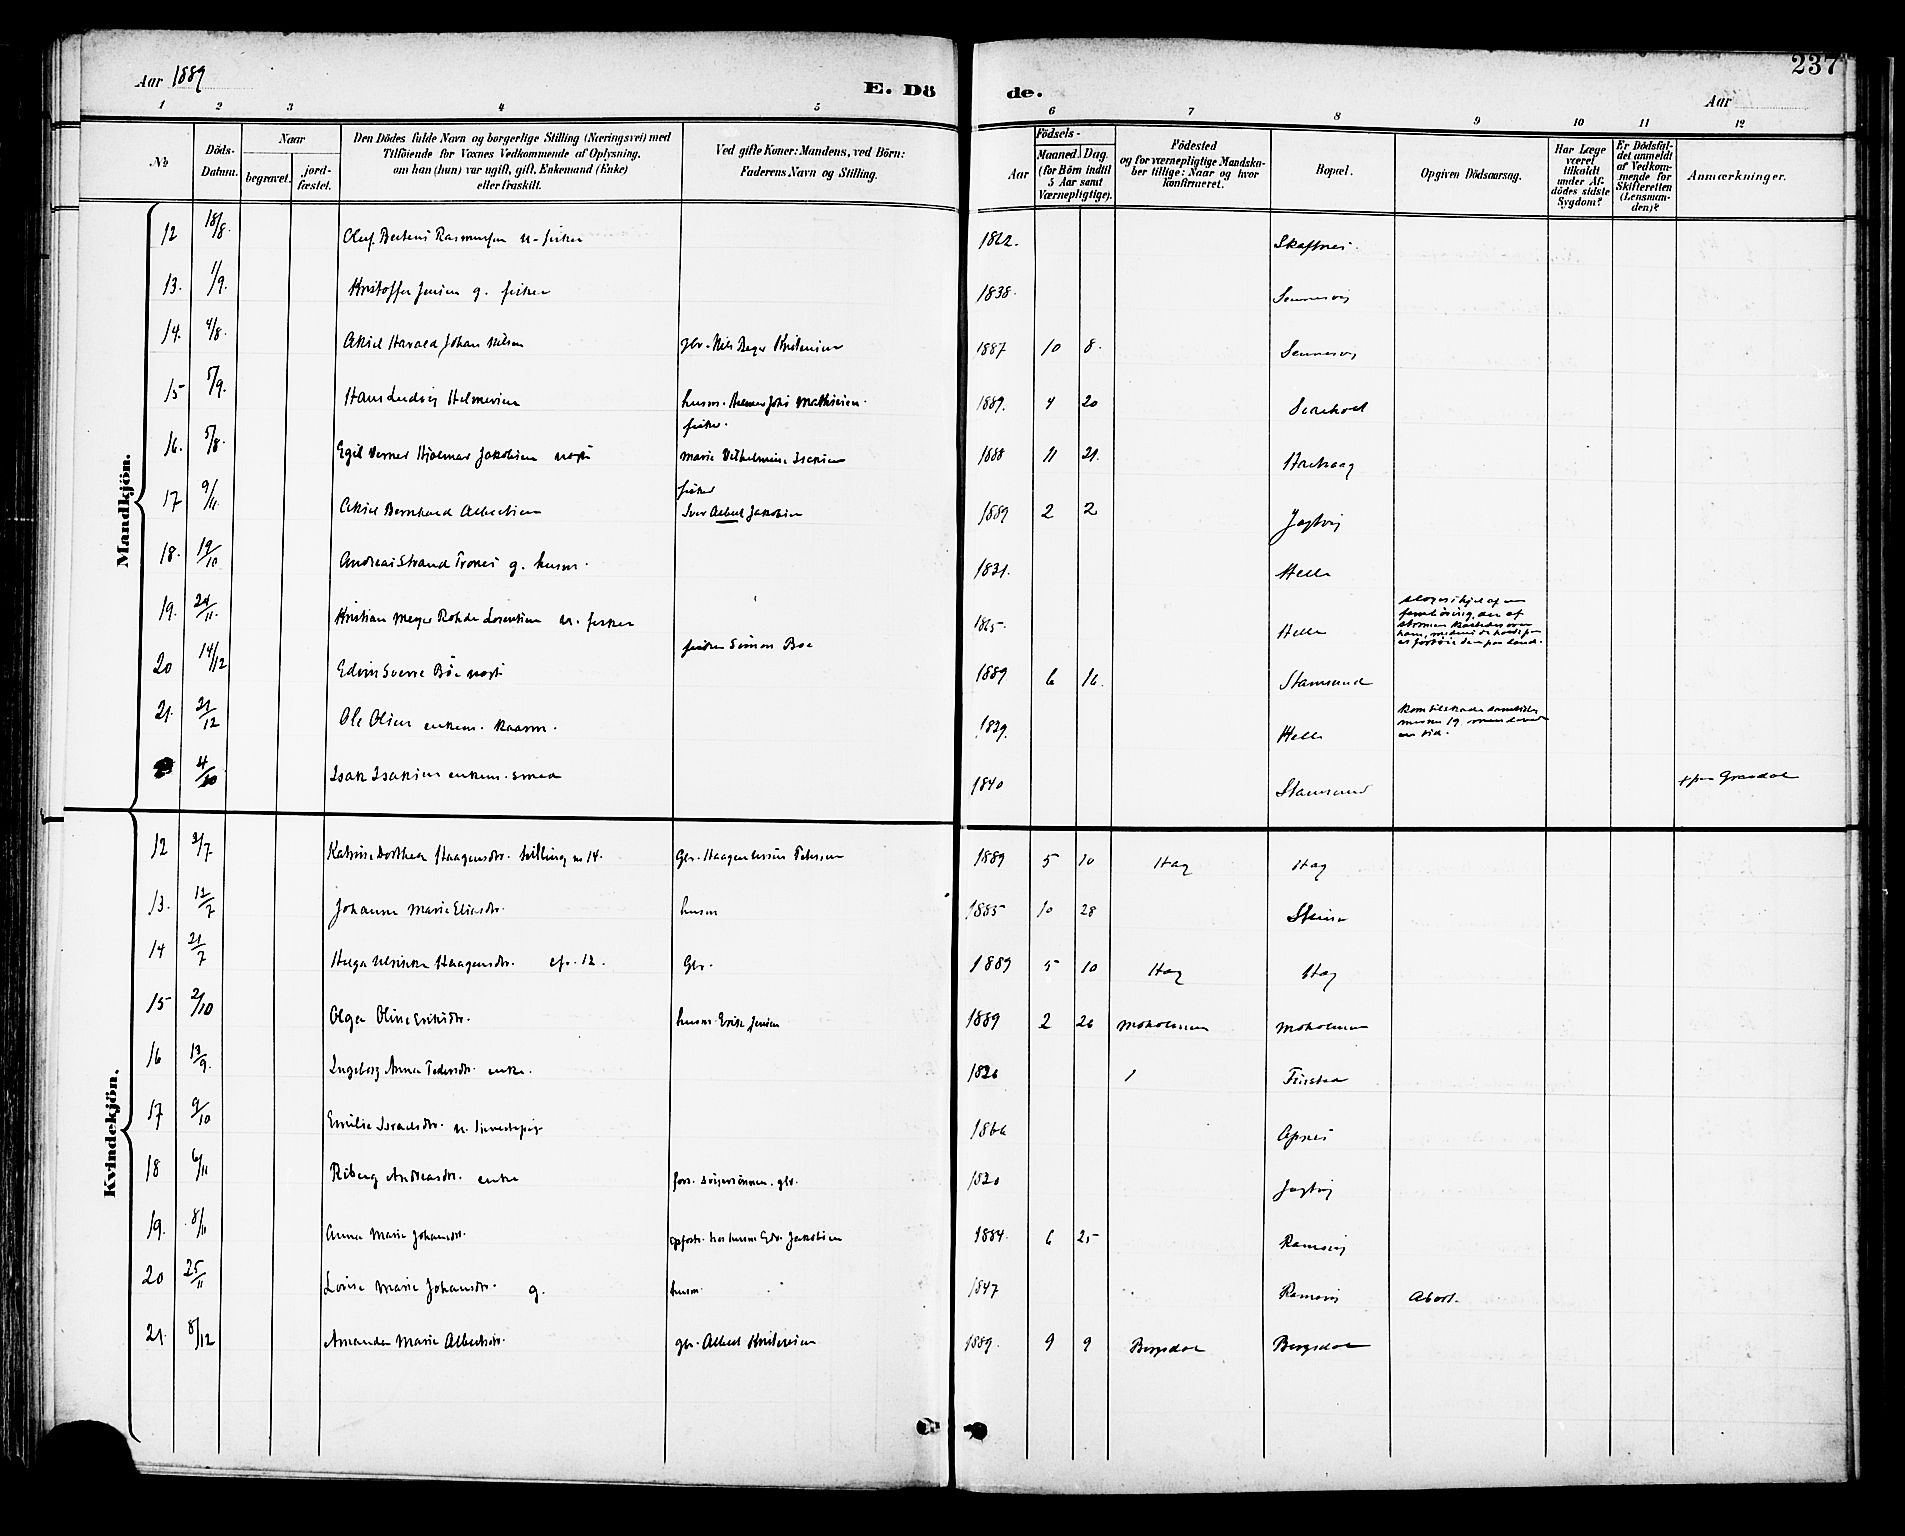 Aar 1889
E. Dö
de.
237
Aar
1 2 3 4 5 6 7 8 9 10 11 12
No
Döds-Datum.
Naar
begravet.
jord-fæstet.
Den Dödes fulde Navn og borgerlige Stilling (Næringsvei) med
Tilföiende for Voxnes Vedkommende af Oplysning.
om han (hun) var ugift, gift, Enkemand (Enke)
eller fraskilt.
Ved gifte Koner: Mandens, ved Börn:
Faderens Navn og Stilling.
Födsels-
Aar
Maaned. Dag.
(for Börn indtil
5 Aar samt
Værnepligtige).
Födested
og for værnepligtige Mandska-
ber tillige: Naar og hvor
konfirmeret.
Bopæl.
Opgiven Dödsaarsag.
Har Læge
været
tilkaldt
under Af-
dödes sidste
Sygdom?
Er Dödsfal-
det anmeldt
af Vedkom-
mende for
Skifteretten
(Lensman-
den)?
Anmærkninger.
Mandkjön.
12 18/8 Oluf Bertens Rasmussen u. fisker 1862. Skaftnes
13. 1/9. Kristoffer Jensen g. fisker 1838. Sennesvig
14. 4/8. Aksel Harald Johan Nilsen gbr. Nils Beyer Kristensen 1887 10 8. Sennesvig
15 5/9. Hans Ludvig Helmersen husm. Helmer Johs Mathisen. 1889. 4 20
16. 5/8. Egil Verner Hjalmar Jakobsen uægte fisker. Marie Vilhelmine Isaksen 1888 11 21.
17 9/11. Aksel Bernhard Albertsen fisker Iver Albert Jakobsen 1889 2 2 Jagtvig
18. 19/10 Andreas Strand Trones g. husm. 1831. Helle
19. 24/11. Kristian Meyer Rohde Lorentsen u. fisker 1865. Helle
20 14/12 Edvin Sverre Böe uægte fisker Simon Böe 1889 6 16. Stamsund
21. 21/12 Ole Olsen enkem. kaarm. 1829. Helle
4/10 Isak Isaksen enkem. smed 1840 Stamsund
Kvindekjön.
12 2/7 Katrine Dorthea Haagensdtr. tvilling m 14. Gbr. Haagen Petersen 1889 5 10 Hag Hag
13. 12/7 Johanna Marie Eliasdtr. husm 1885 10 28 Steine
14 21/7 Helga Ulrikke Haagensdtr. cfr. 12. Gbr. 1889 5 10 Hag Hag
15 2/10 Olga Oline Eriksdtr. husm. Erik Jensen 1889 2 26 Moholmen Moholmen
16 13/9. Ingeborg Anna Pedersdtr. enke. 1826 Fristad
17 9/10 Emilie Israelsdtr. u. tjenestepige 1866 Apnes
18 6/11 Riberg Andreasdtr. enke fors. svigersönnen. gbr. 1820 Jagtvig
19. 8/11 Anna Marie Johansdtr. opfostr. hos husm Edv. Jakobsen 1884. 6 25 Ramsvig
20 25/11 Lovise Marie Johansdtr. g. husm. 1847 Ramsvig Abort.
21. 8/12 Amanda Marie Albertsdtr. gbr. Albert Kristensen 1889. 9 9 Bergsdal Bergsdal